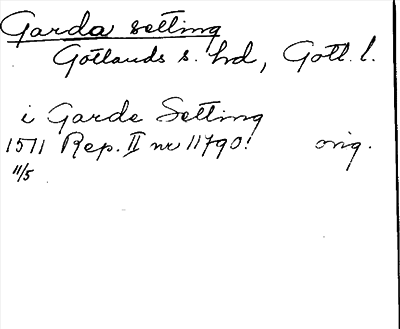 Garda setting
Gotlands s. hd, Gotl. l.
i Garde Setting
1511 Rep. II nr 11790! orig.
11/5